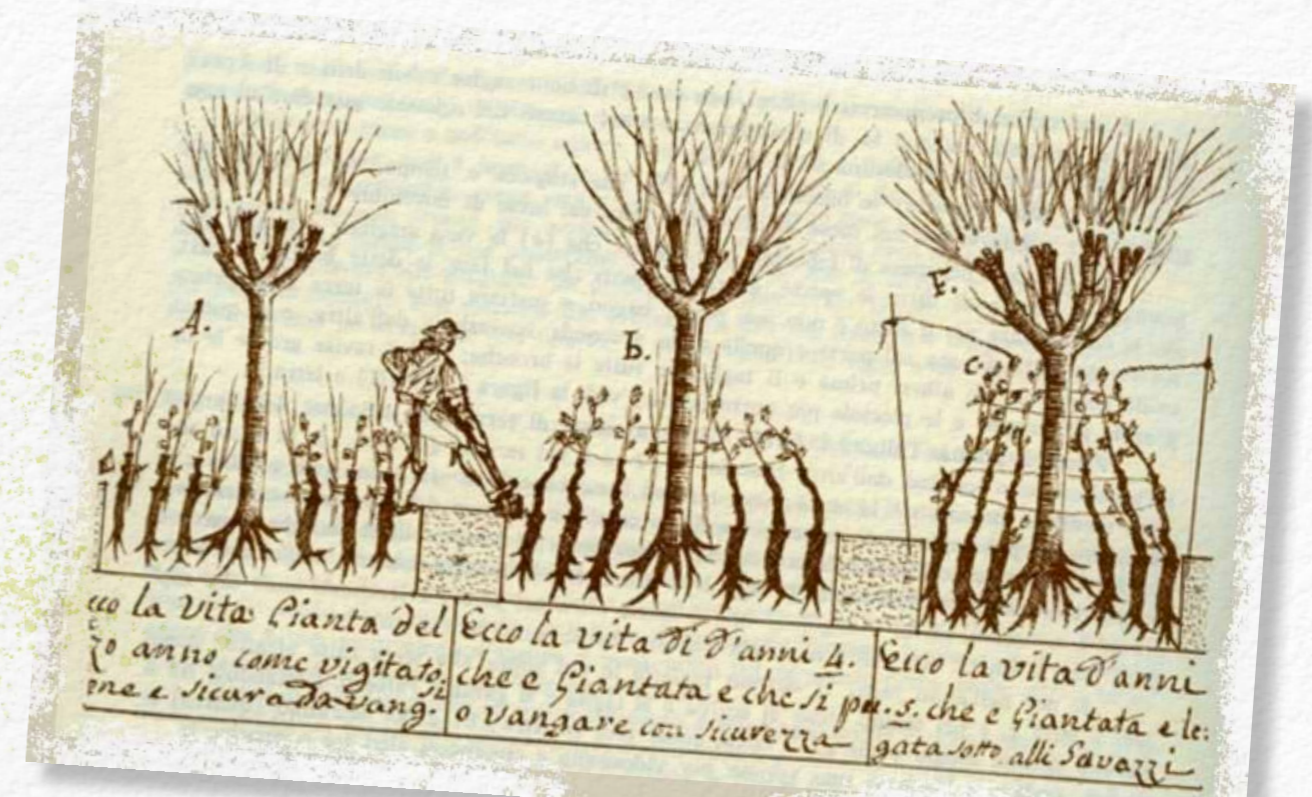 A.
b.
F.
c.
cco la vita Pianta del
zo anno come vigitato,
ene e sicura da vang: si
Ecco la vita di d'anni 4.
che e Piantata e che si pu
o vangare con sicurezza
Ecco la vita d'anni
.5. che e Piantata e le:
gata sotto alli